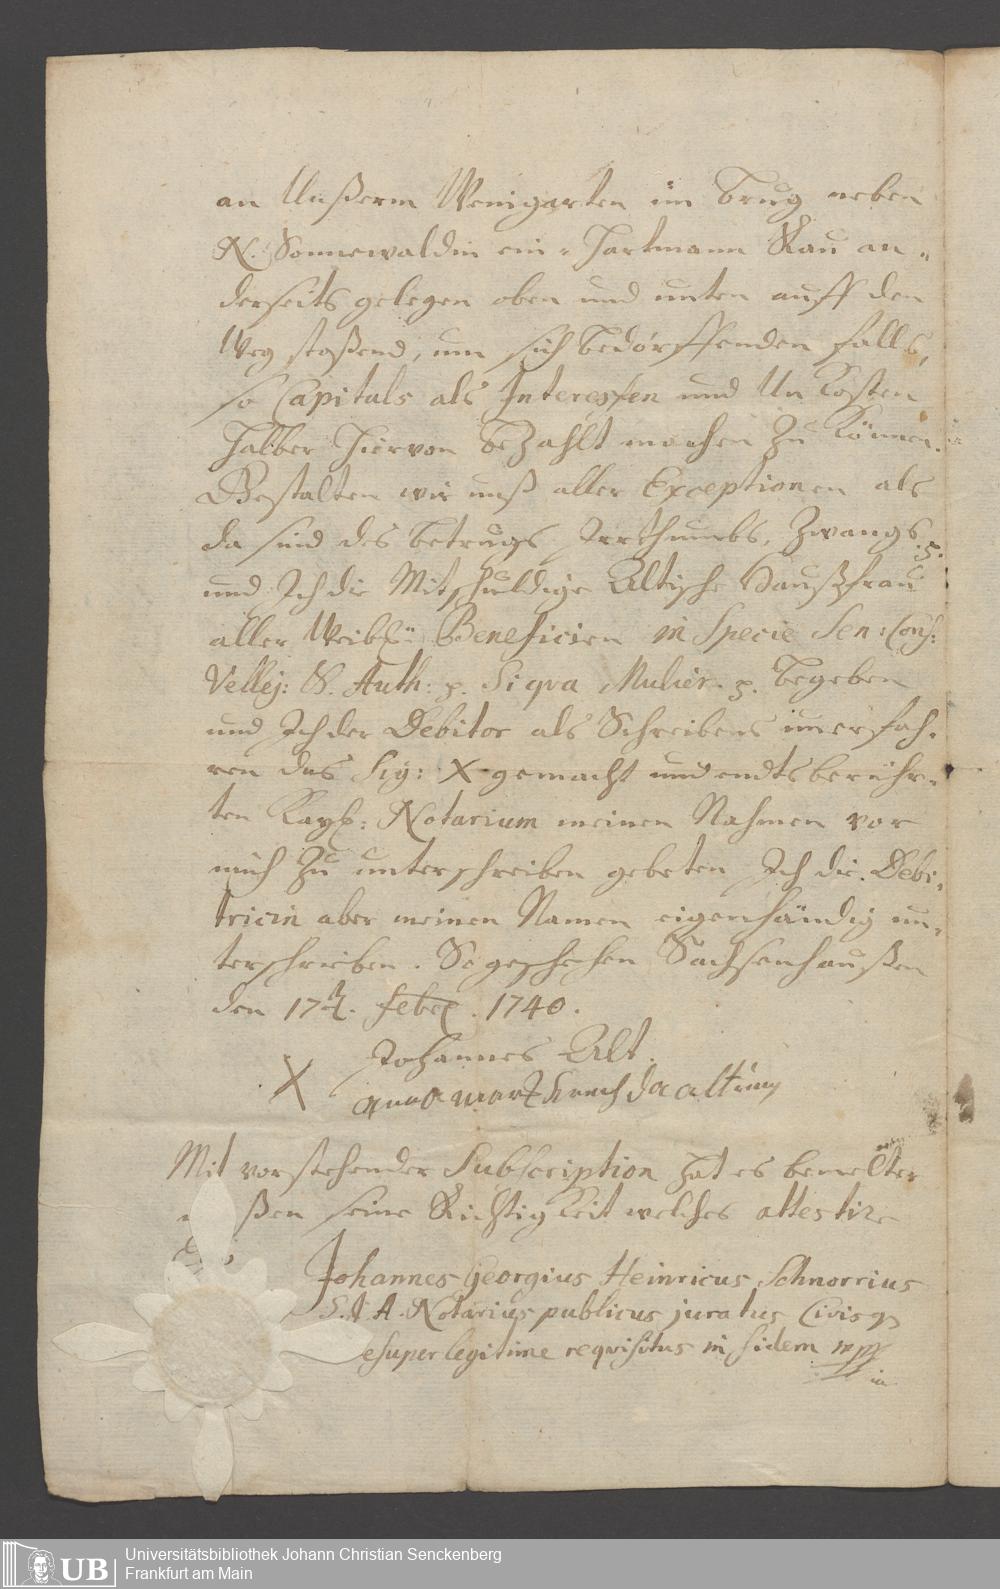 an Unßerm Wenigarten im Brug neben
N. Sonnewaldin ein- Hartmann Rau an-
derseits gelegen oben und unten auff den
Weg stoßend, um sich bedörffenden falls,
so Capitals als Interessen und Un Kosten
halber hiervon bezahlt machen zu können.
Gestalten wir unß aller Exceptionen als
da sind des Betrugs Irrthumbs, Zwangs
und Ich die Mitschuldige Altische Haußfrau
aller Weibl: Beneficien in Specie Sen: Cons:
Vellej: & Auth: p. Siqva Mulier. p. begeben
und Ich der Debitor als Schreibens unerfah-
ren das Sig: X gemacht und endts berühr-
ten Kayß: Notarium meinen Nahmen vor
mich zu unterschreiben gebeten Ich die Debi-
tricin aber meinen Namen eigenhändig un-
terschrieben. So geschehen Sachsenhaußen
den 17. Febr. 1740.
Johannes Alt.
X
anna
Mit vorstehender Subscription hat es bemelter
ßen seine Richtigkeit welches attestire
Johannes Georgius Heinricus Schnorrius
Notarius publicus juratus Civisq
esuper legitime reqvisitus in fidem mpp
Universitätsbibliothek Johann Christian Senckenberg
UB Frankfurt am Main